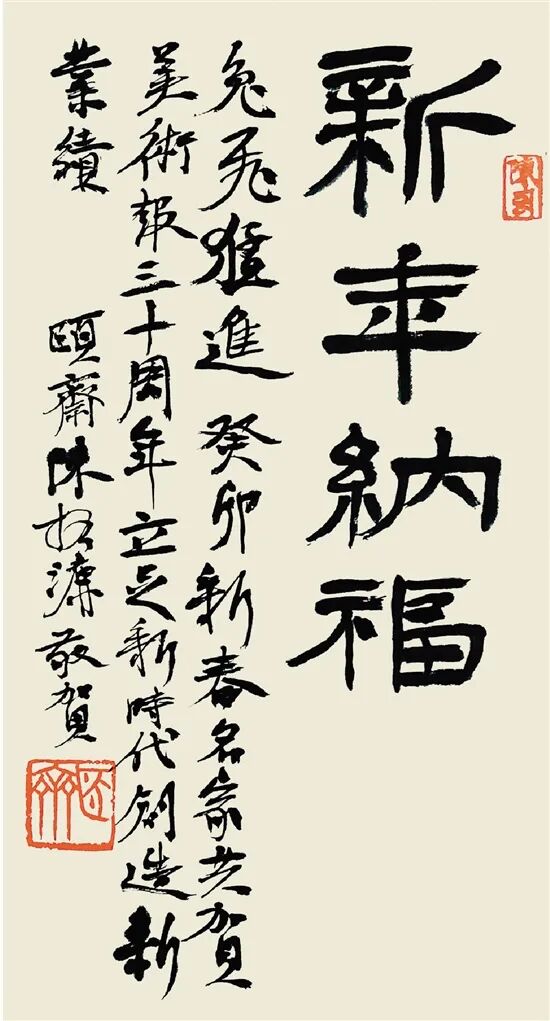 新年納福
兔飛猛進 癸卯新春名家共賀
美術報三十周年立足新時代創造新
業績 頤齋陳振濂敬賀